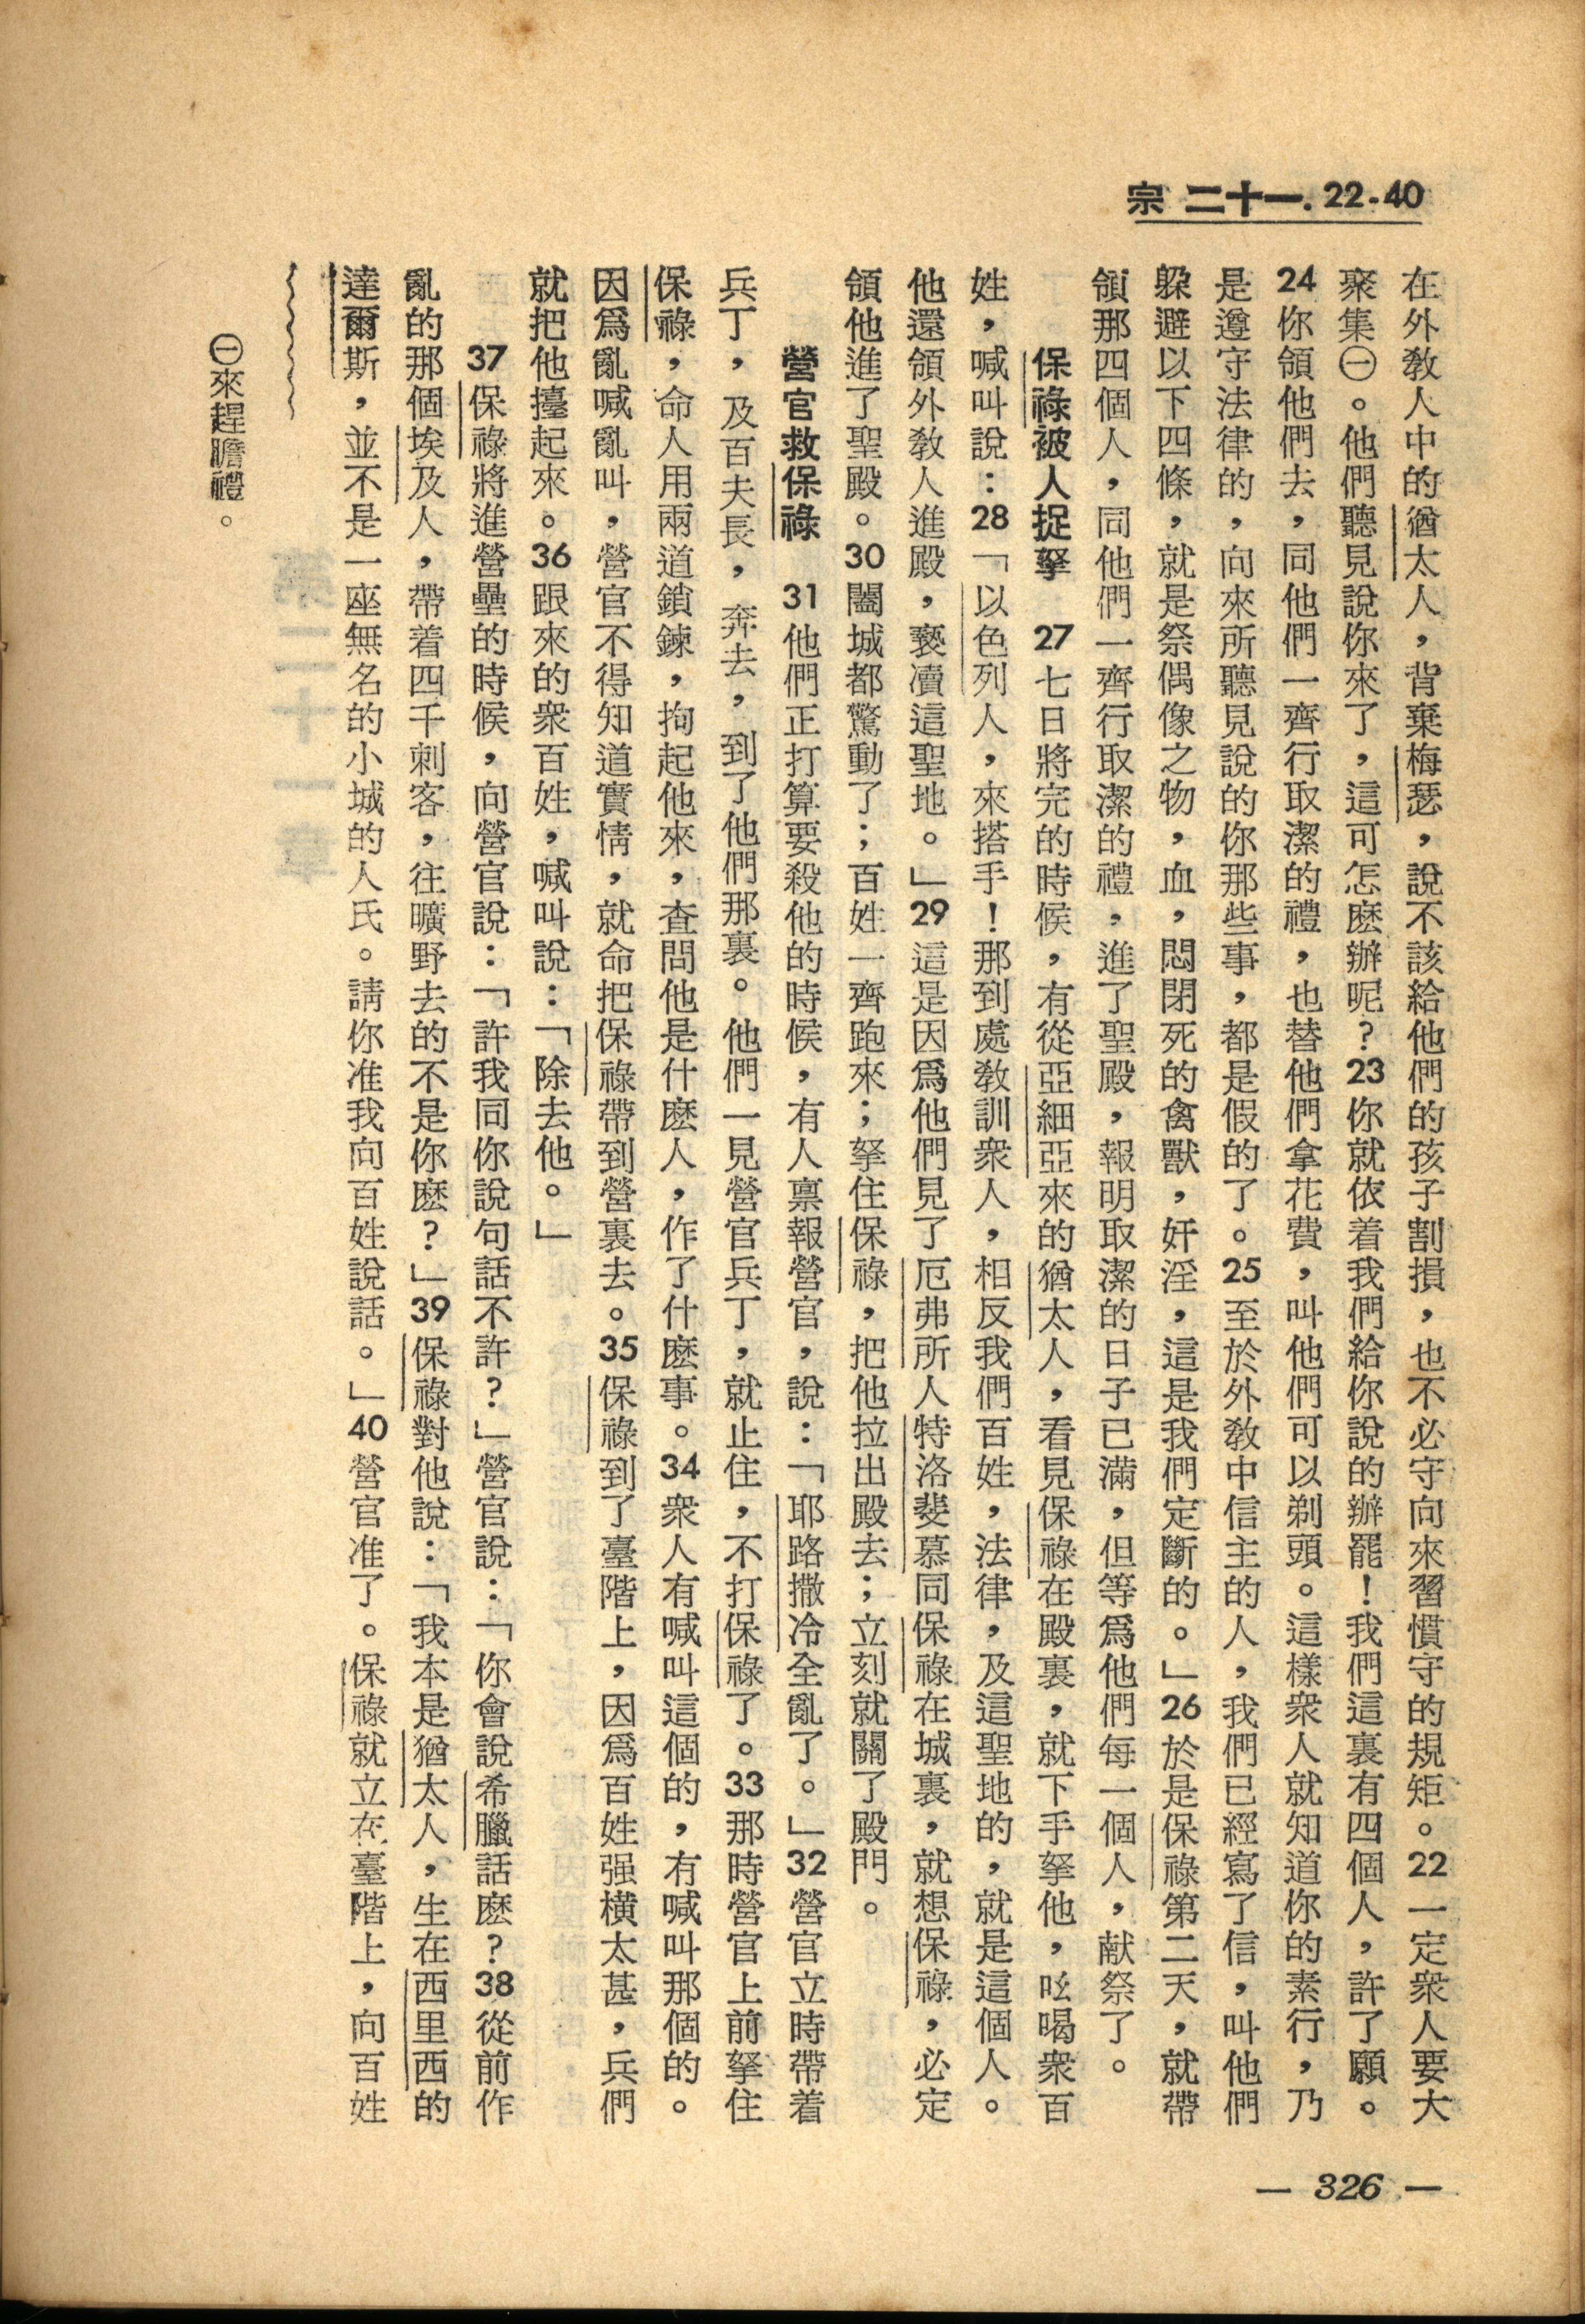 宗 二十一. 22-40
在外敎人中的猶太人，背棄梅瑟，說不該給他們的孩子割損，也不必守向來習慣守的規矩。22一定衆人要大
聚集㊀。他們聽見說你來了，這可怎麽辦呢？23你就依着我們給你說的辦罷！我們這裏有四個人，許了願。
24你領他們去，同他們一齊行取潔的禮，也替他們拿花費，叫他們可以剃頭。這樣衆人就知道你的素行，乃
是遵守法律的，向來所聽見說的你那些事，都是假的了。25至於外敎中信主的人，我們已經寫了信，叫他們
躱避以下四條，就是祭偶像之物，血，悶閉死的禽獸，奸淫，這是我們定斷的。」26於是保祿第二天，就帶
領那四個人，同他們一齊行取潔的禮，進了聖殿，報明取潔的日子已滿，但等爲他們每一個人，献祭了。
保祿被人捉拏　27七日將完的時候，有從亞細亞來的猶太人，看見保祿在殿裏，就下手拏他，吆喝衆百
姓，喊叫說：28「以色列人，來搭手！那到處敎訓衆人，相反我們百姓，法律，及這聖地的，就是這個人。
他還領外敎人進殿，褻凟這聖地。」29這是因爲他們見了厄弗所人特洛斐慕同保祿在城裏，就想保祿，必定
領他進了聖殿。30闔城都驚動了；百姓一齊跑來；拏住保祿，把他拉出殿去；立刻就關了殿門。
營官救保祿　31他們正打算要殺他的時候，有人禀報營官，說：「耶路撒冷全亂了。」32營官立時帶着
兵丁，及百夫長，奔去，到了他們那裏。他們一見營官兵丁，就止住，不打保祿了。33那時營官上前拏住
保祿，命人用兩道鎖鍊，拘起他來，查問他是什麽人，作了什麽事。34衆人有喊叫這個的，有喊叫那個的。
因爲亂喊亂叫，營官不得知道實情，就命把保祿帶到營裏去。35保祿到了臺階上，因爲百姓强橫太甚，兵們
就把他擡起來。36跟來的衆百姓，喊叫說：「除去他。」
37保祿將進營壘的時候，向營官說：「許我同你說句話不許？」營官說：「你會說希臘話麽？38從前作
亂的那個埃及人，帶着四千刺客，往曠野去的不是你麽？」39保祿對他說：「我本是猶太人，生在西里西的
達爾斯，並不是一座無名的小城的人氏。請你准我向百姓說話。」40營官准了。保祿就立在臺階上，向百姓
㊀來趕瞻禮。
— 326 —